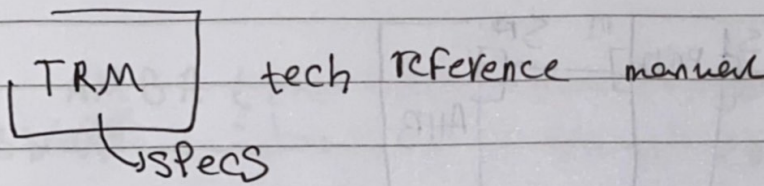 TRM tech reference manual
specs